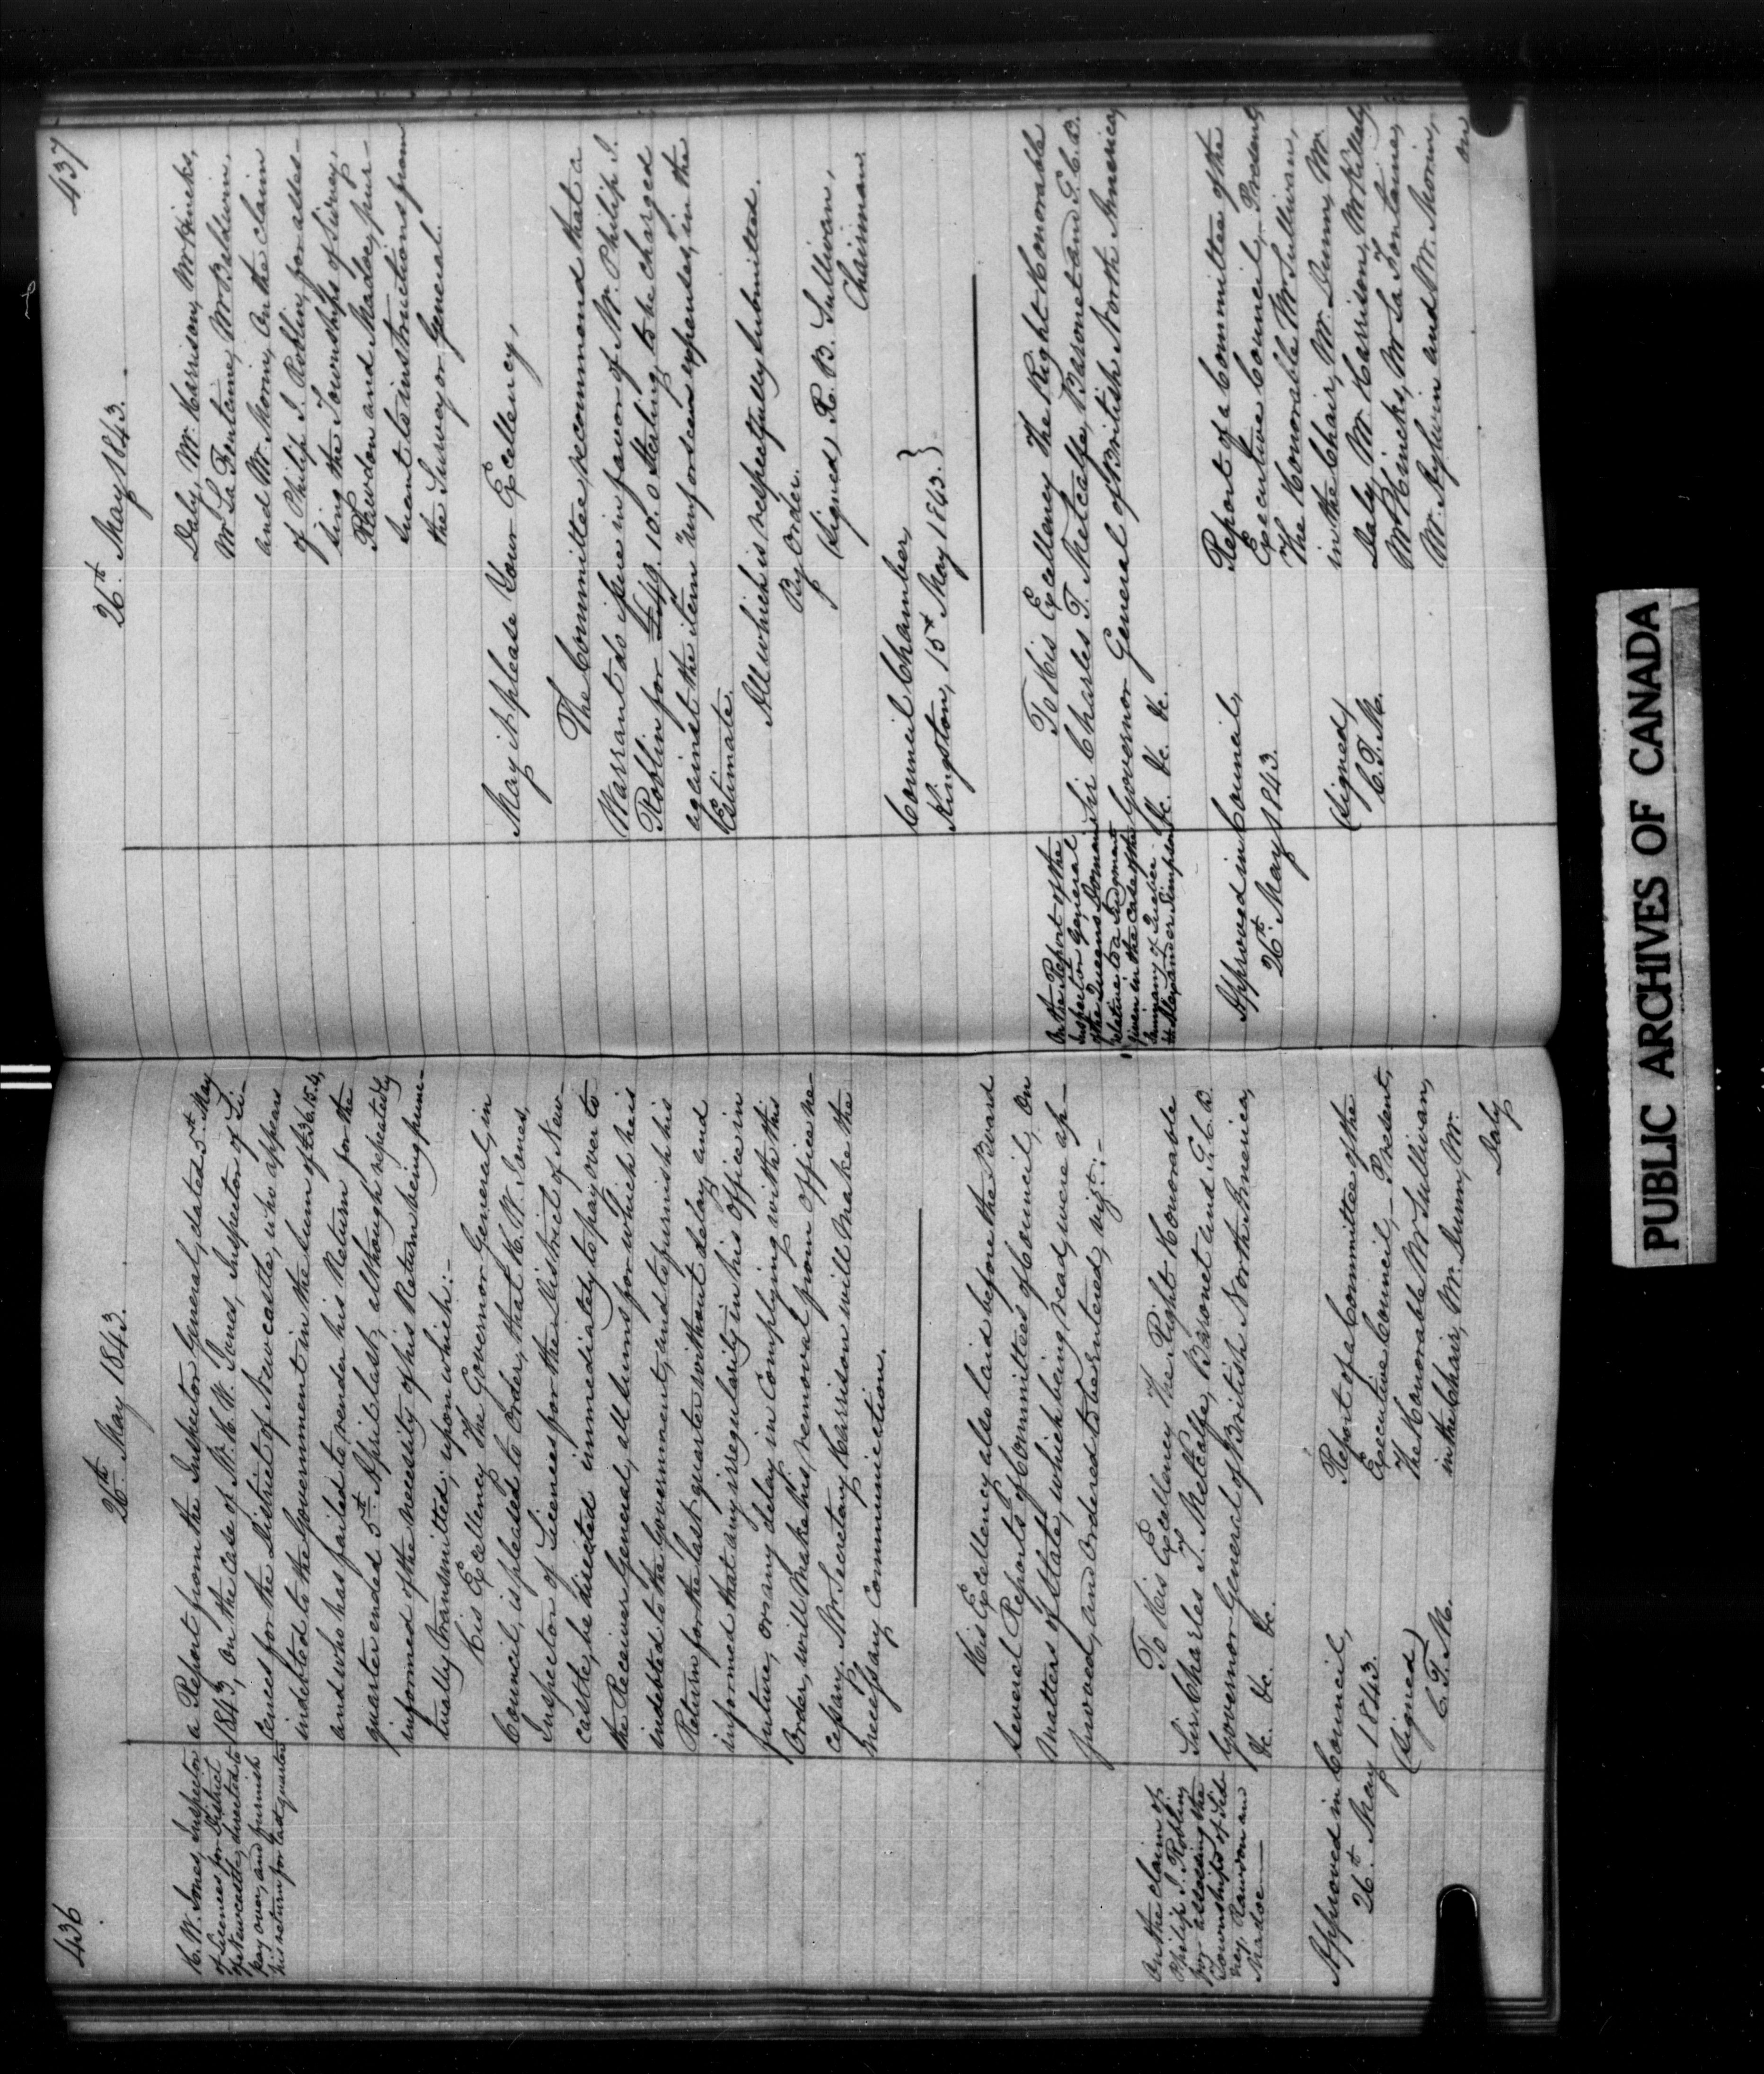 436
26th May 1843.
H. W. Jones, Inspector
of Licences for District
of Newcastle, directed to
pay over, and furnish
his return for last quarter
a Report from the Inspector General, dated 5th May
1843, on the case of Mr. H. W. Jones, Inspector of Li-
cences for the District of Newcastle, who appears
indebted to the Government in the sum of £36.15.4,
and who has failed to render his Return for the
quarter ended 5th April last, although repeatedly
informed of the necessity of his Return being punc-
tually transmitted; upon which:-
His Excellency The Governor General, in
Council, is pleased to Order, that H. W. Jones,
Inspector of Licences for the District of New-
castle, be directed immediately to pay over to
the Receiver General, all sums for which he is
indebted to the Government, and to furnish his
Return for the last quarter without delay, and
informed that any irregularity in his Office in
future, or any delay in Complying with this
Order, will make his removal from Office ne-
cessary. Mr Secretary Harrison will make the
necessary Communication.
His Excellency also laid before the Board
several Reports of Committees of Council, On
Matters of State, which being read, were ap-
proved, and Ordered to be Entered, vizt:-
On the claim of
Philip J. Roblin,
for assessing the
Townships of Sid-
ney, Rawdon and
Madoc
To His Excellency The Right Honorable
Sir Charles T. Metcalfe, Baronet and G.C.B.
Governor General of British North America,
&c. &c. &c.
Approved in Council,
26th May 1843.
(Signed)
C. T. M.
Report of a Committee of the
Executive Council,- Present,
The Honorable Mr Sullivan,
in the Chair, Mr. Dunn, Mr.
Daly
437
26th May 1843.
Daly, Mr. Harrison, Mr Hincks,
Mr La Fontaine, Mr Baldwin,
and Mr. Morin, On the claim
of Philip J. Roblin, for asses-
sing the Townships of Sidney,
Rawdon and Madoc, pur-
suant to instructions from
the Surveyor General.
May it please Your Excellency,
The Committee recommend that a
Warrant do issue in favor of Mr. Philip J.
Roblin for £49. 10. 0 Sterling, to be charged
against the item Unforseen expenses, in the
Estimate.
All which is respectfully submitted.
By Order.
(Signed) R. B. Sullivan,
Chairman.
Council Chamber,
Kingston, 15th May 1843. }
On the Report of the
Inspector General
of the Queens Domain
relative to a Judgment
given in the case of the
Seigniory of
Alexander Simpson
To His Excellency The Right Honorable
Sir Charles T. Metcalfe, Baronet and G.C.B.
Governor General of British North America,
&c. &c. &c.
Approved in Council,
26th May 1843.
(Signed)
C. T. M.
Report of a Committee of the
Executive Council, Present,
The Honorable Mr Sullivan,
in the Chair, Mr. Dunn, Mr.
Daly, Mr. Harrison, Mr Killaly,
Mr Hincks, Mr La Fontaine,
Mr. Aylwin and Mr. Morin,
on
PUBLIC ARCHIVES OF CANADA